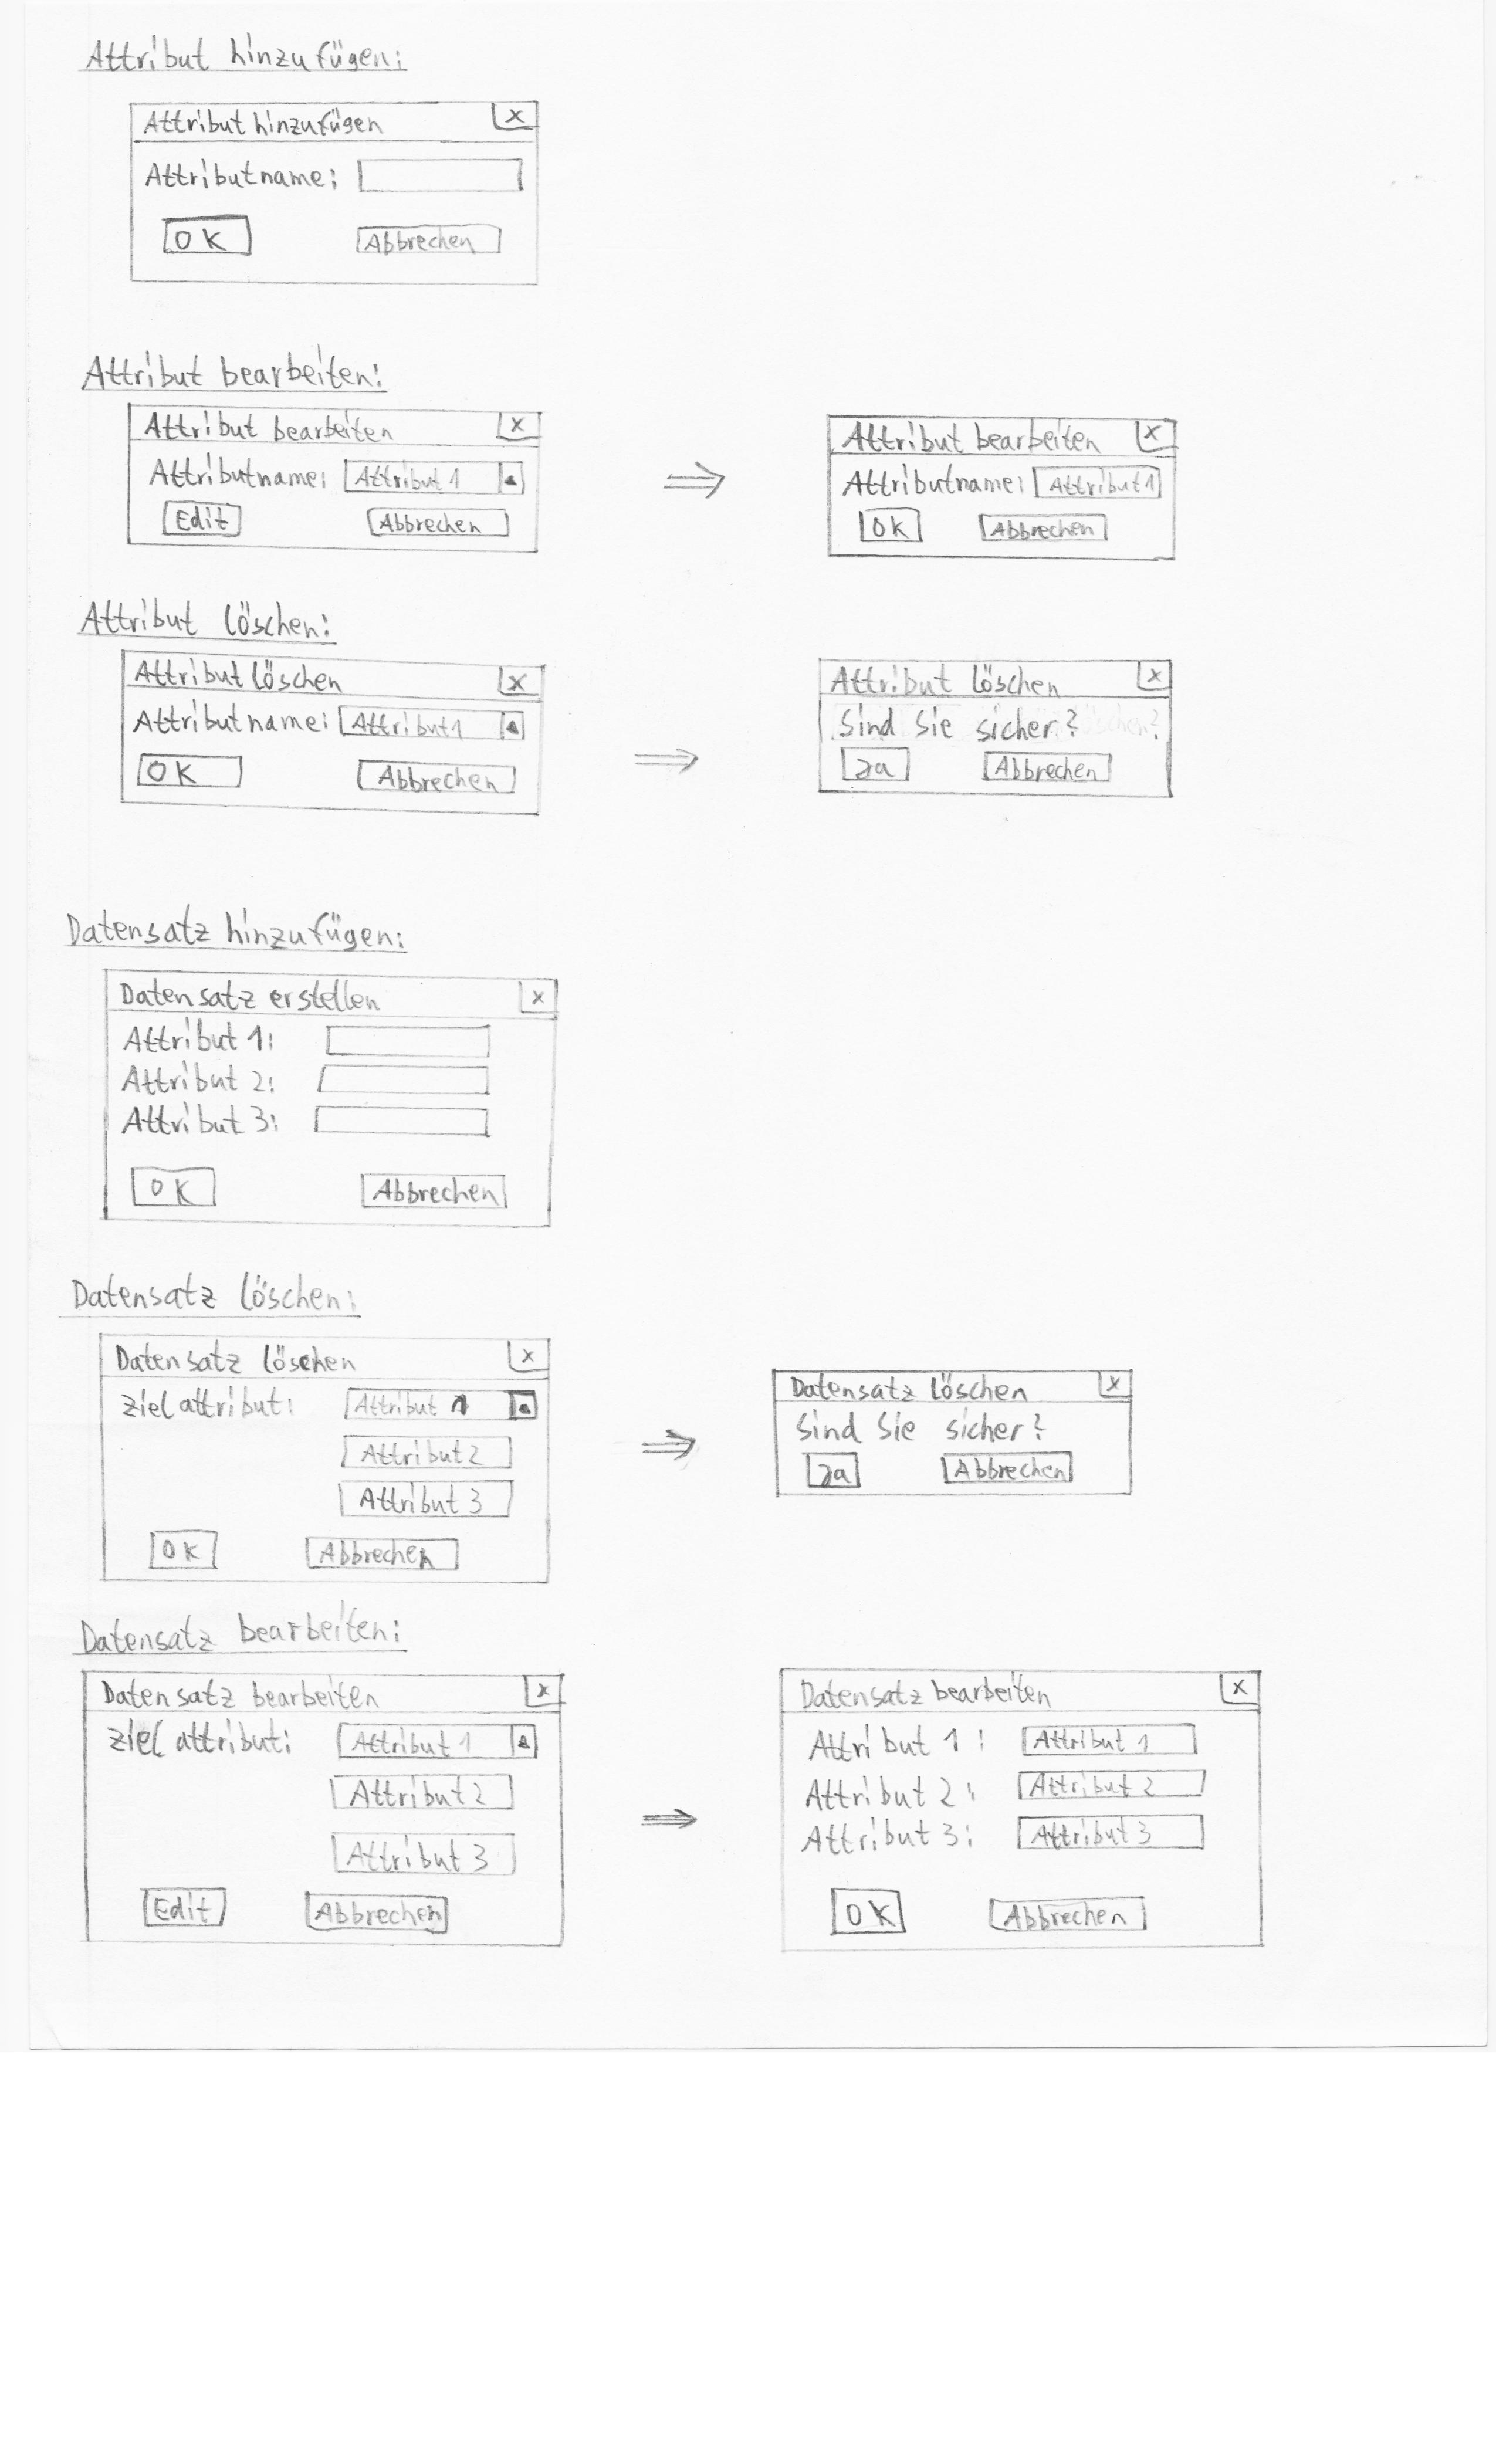 Attribut hinzufügen:
Attribut hinzufügen X
Attributname:
OK Abbrechen
Attribut bearbeiten:
Attribut bearbeiten X
Attributname: Attribut 1
Edit Abbrechen
⇒
Attribut bearbeiten X
Attributname: Attribut 1
OK Abbrechen
Attribut löschen:
Attribut löschen X
Attributname: Attribut 1
OK Abbrechen
⇒
Attribut löschen X
Sind Sie sicher?
Ja Abbrechen
Datensatz hinzufügen:
Datensatz erstellen X
Attribut 1:
Attribut 2:
Attribut 3:
OK Abbrechen
Datensatz löschen:
Datensatz löschen X
Zielattribut: Attribut 1
Attribut 2
Attribut 3
OK Abbrechen
⇒
Datensatz löschen X
Sind Sie sicher?
Ja Abbrechen
Datensatz bearbeiten:
Datensatz bearbeiten X
Zielattribut: Attribut 1
Attribut 2
Attribut 3
Edit Abbrechen
⇒
Datensatz bearbeiten X
Attribut 1: Attribut 1
Attribut 2: Attribut 2
Attribut 3: Attribut 3
OK Abbrechen